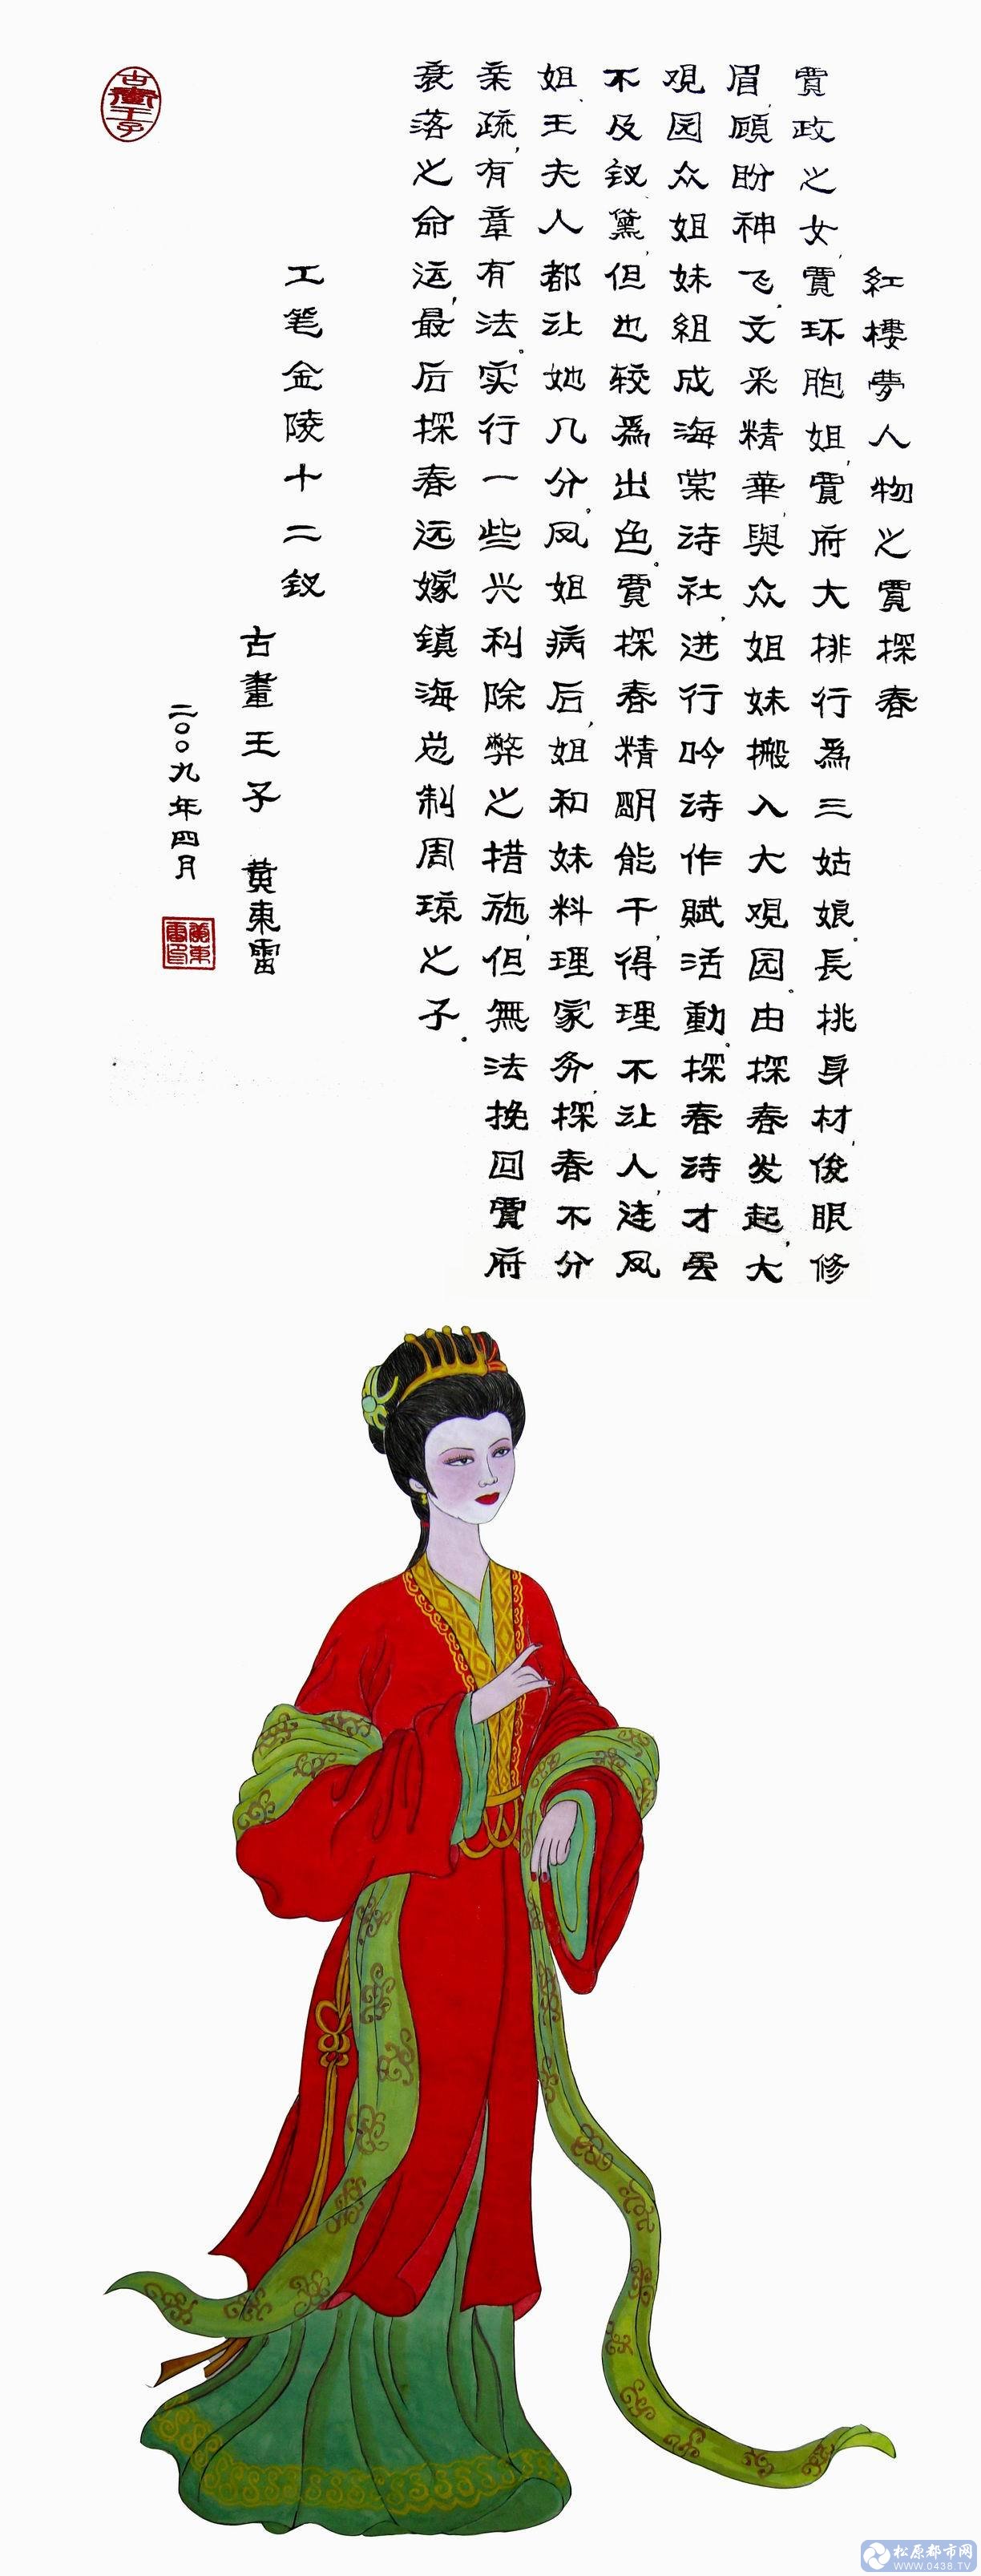 紅樓夢人物之賈探春
賈政之女,賈环胞姐,賈府大排行爲三姑娘。長挑身材,俊眼修
眉,顾盼神飞,文采精華,與众姐妹搬入大观园。由探春发起,大
观园众姐妹組成海棠诗社,进行吟诗作賦活動。探春诗才虽
不及钗、黛,但也较爲出色。賈探春精明能干,得理不让人,连凤
姐、王夫人都让她几分。凤姐病后,姐和妹料理家务,探春不分
亲疏,有章有法。实行一些兴利除弊之措施,但無法挽回賈府
衰落之命运,最后探春远嫁鎮海总制周琼之子。
工笔金陵十二钗
古畫王子 黄東雷
二〇〇九年四月
古畫王子
黄東雷印
松原都市网
WWW.0438.TV